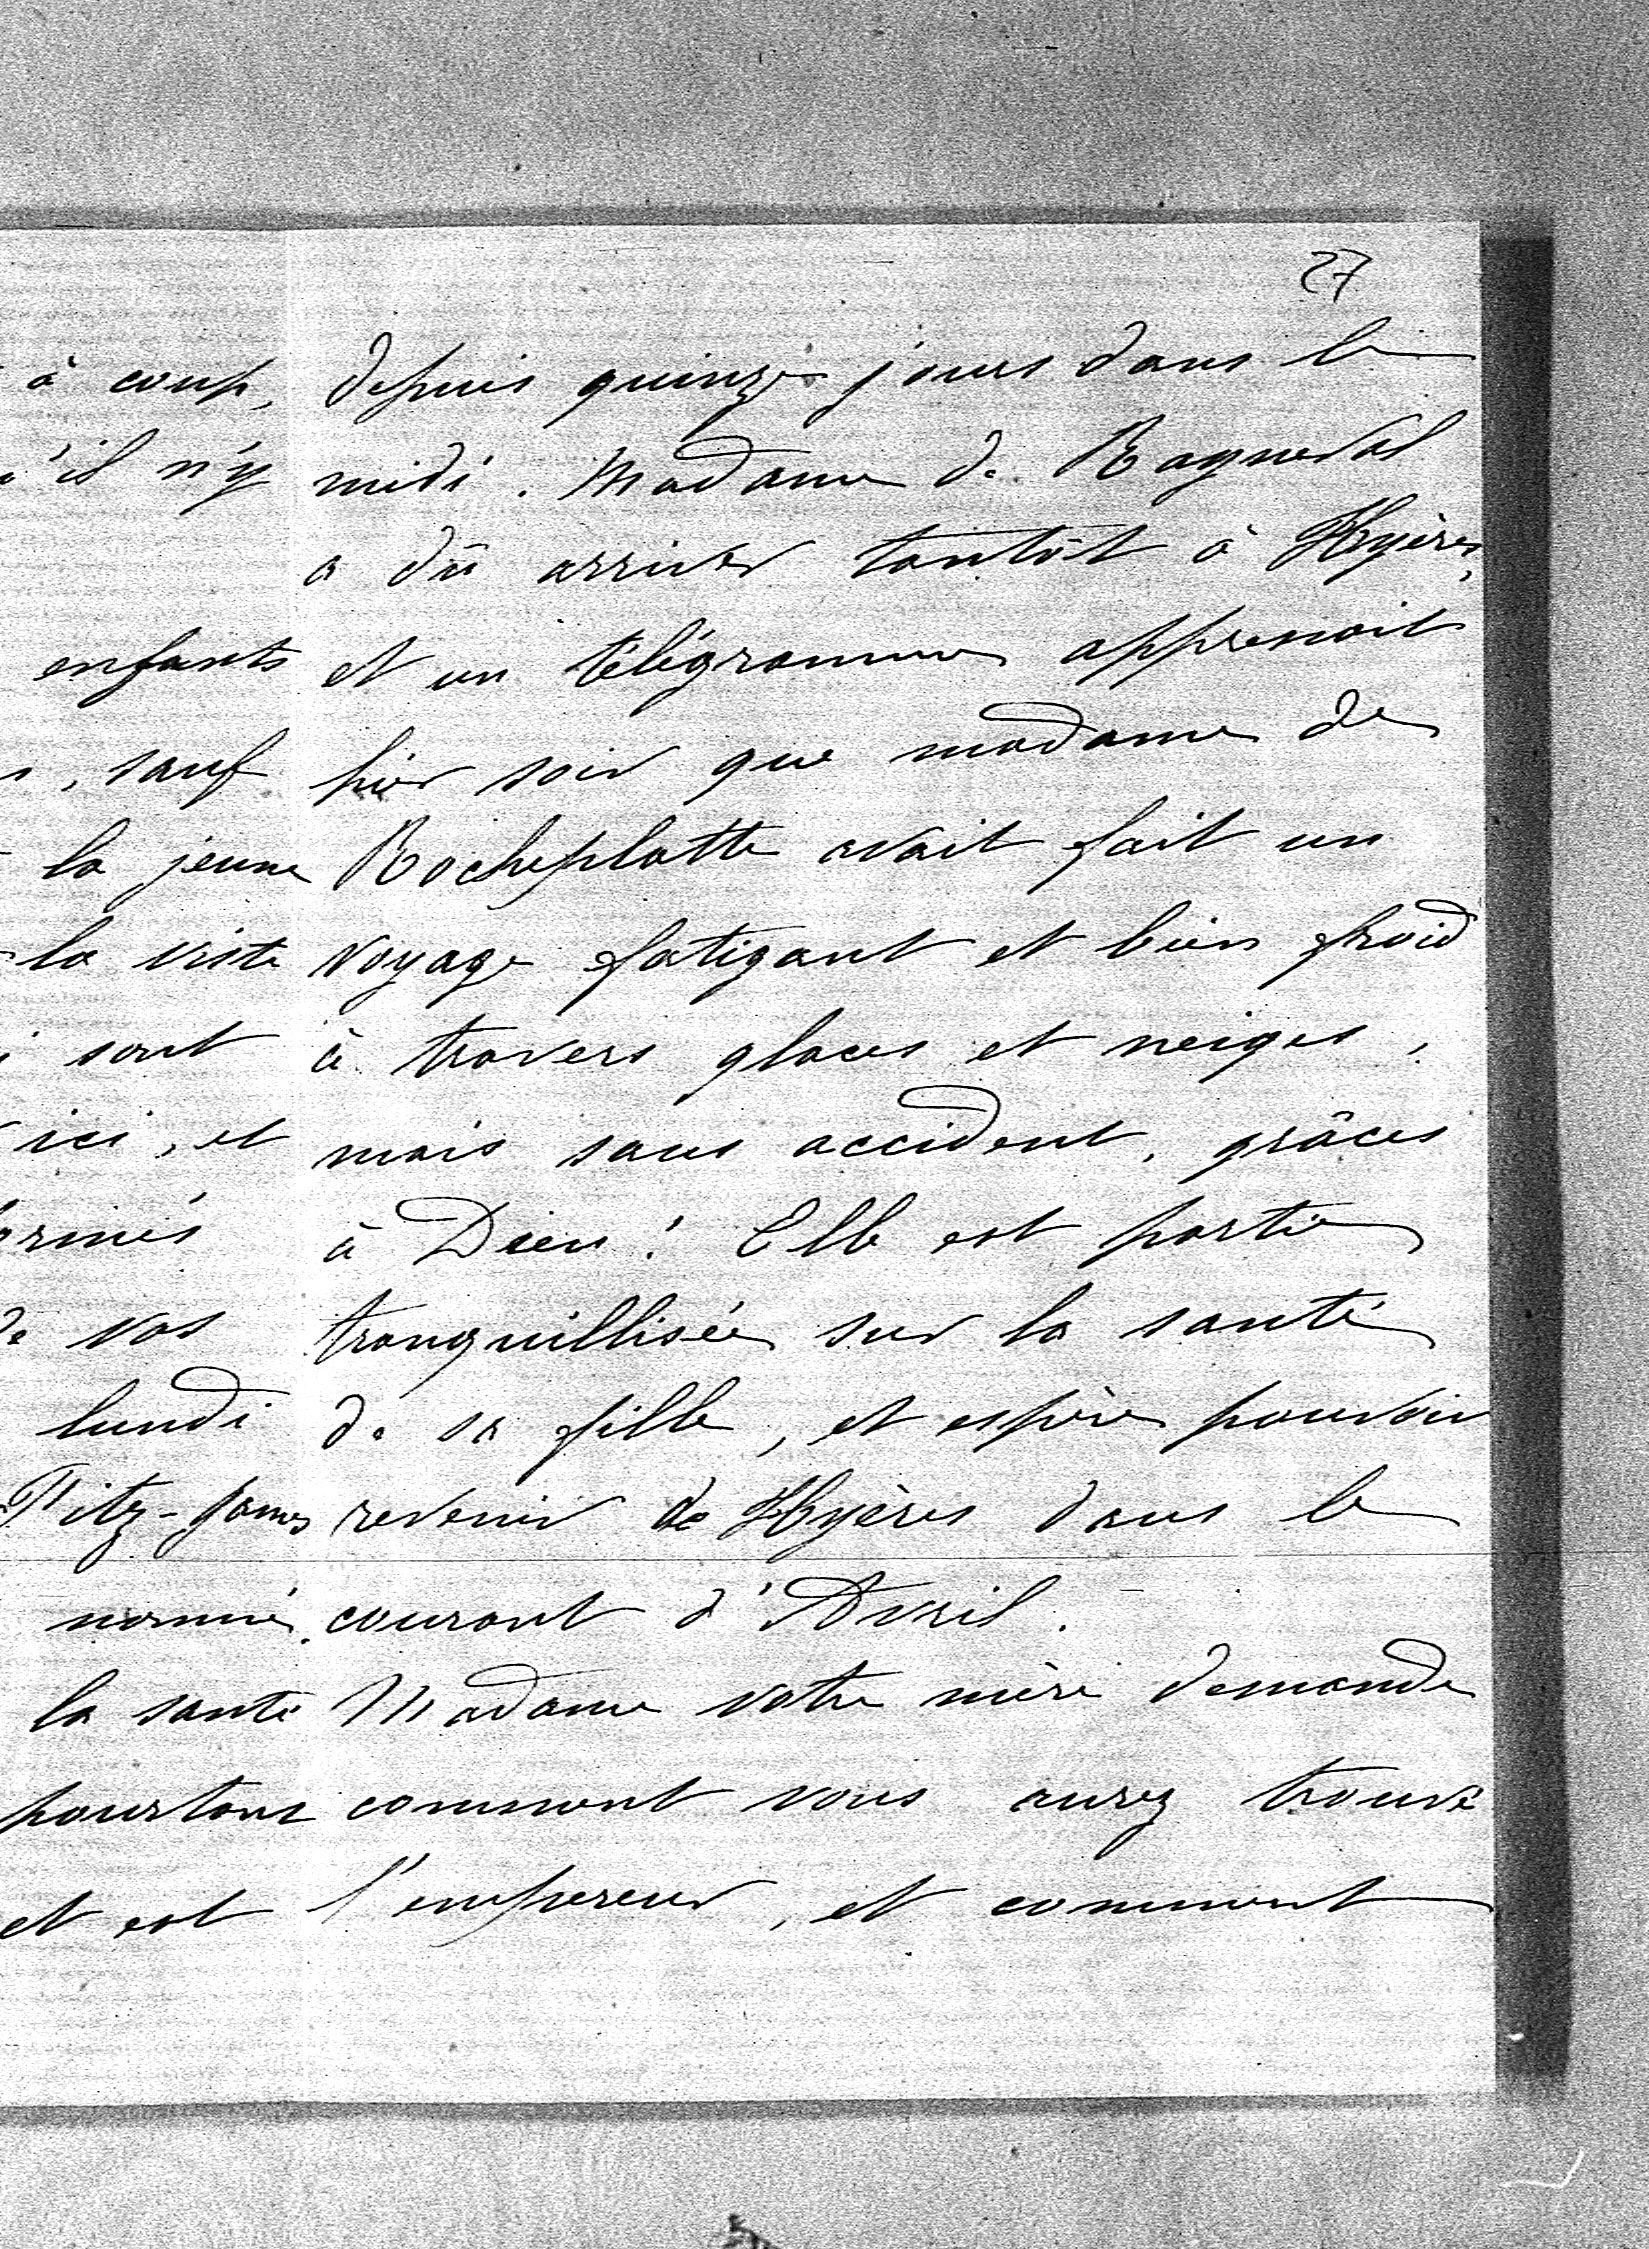 27
à coup,
'il n'y
enfants
, sauf
la jeune
la viste
sont
ici, et
de vos
lundi
Fitz-James
nommé.
la santé
pourtant
et est
depuis quinze jours dans le
midi. Madame de Rayneval
a dû arriver tantôt à Hyères,
et un télégramme apprenait
hier soir que madame de
Rocheplatte avait fait un
voyage fatigant et bien froid
à travers glaces et neiges,
mais sans accident, grâces
à Dieu! Elle est partie
tranquillisée sur la santé
de sa fille, et espère pouvoir
revenir de Hyères dans le
courant d'Avril.
Madame votre mère demande
comment vous aurez trouvé
l'empereur, et comment